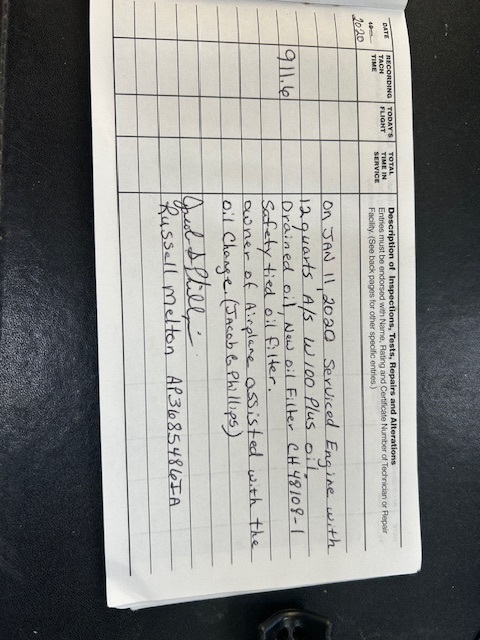 DATE
19
2020
RECORDING TACH TIME
TODAY'S FLIGHT
TOTAL TIME IN SERVICE
Description of Inspections, Tests, Repairs and Alterations
Entries must be endorsed with Name, Rating and Certificate Number of Technician or Repair
Facility. (See back pages for other specific entries)
911.6
On JAN 11, 2020 Serviced Engine with
12 quarts A/S W100 Plus oil,
Drained oil, New oil Filter CH48108-1
Safety tied oil filter.
owner of Airplane assisted with the
oil Change (Jacob G Phillips)
Russell Melton AP3685486IA